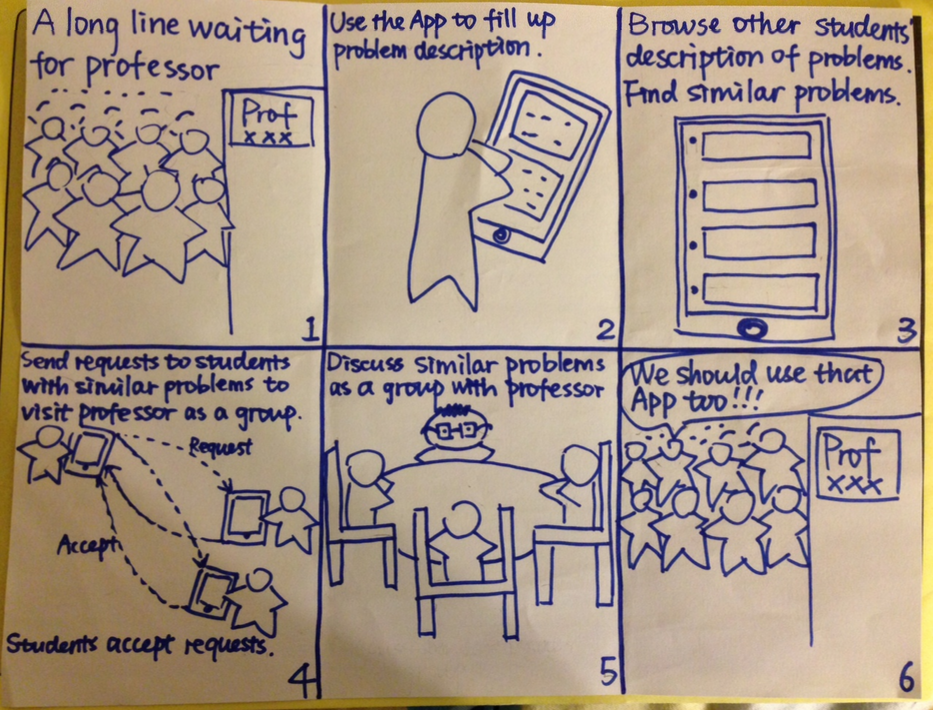 A long line waiting
for professor
Prof
xxx
1
Use the App to fill up
problem description.
2
Browse other students'
description of problems.
Find similar problems.
3
Send requests to students
with similar problems to
visit professor as a group.
Request
Accept
Students accept requests.
4
Discuss similar problems
as a group with professor
5
We should use that
App too!!!
Prof
xxx
6